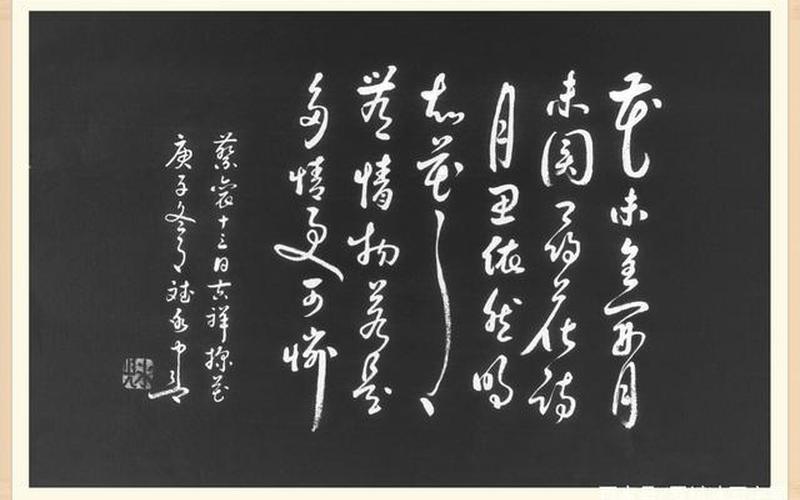 花未全開月
未圓尋花待
月思依然明
知花月
無情物若是
多情更可憐
蔡襄十三日吉祥探花
庚子冬月